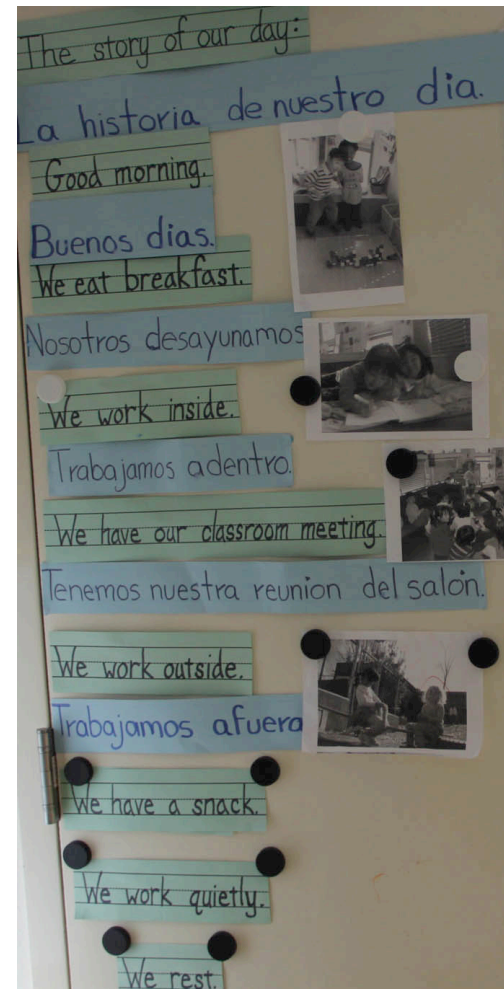 The story of our day:
La historia de nuestro dia.
Good morning.
Buenos dias.
We eat breakfast.
Nosotros desayunamos
We work inside.
Trabajamos adentro.
We have our classroom meeting.
Tenemos nuestra reunion del salón.
We work outside.
Trabajamos afuera
We have a snack.
We work quietly.
We rest.